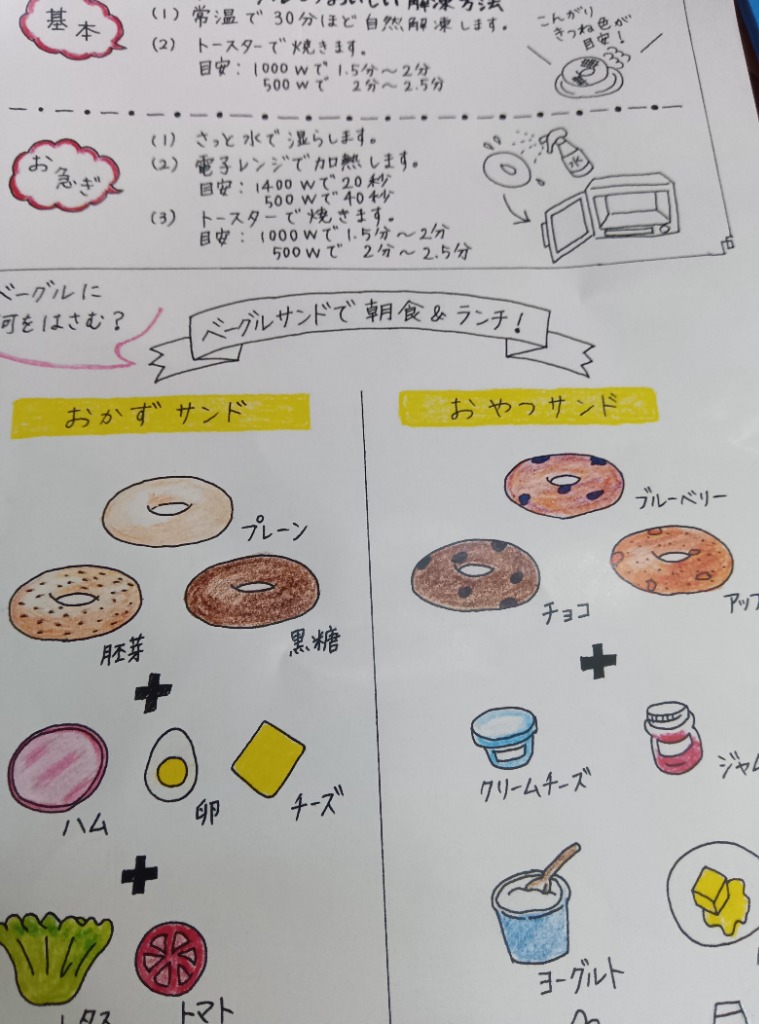 おいしい解凍方法
基本
(1) 常温で30分ほど自然解凍します。
(2) トースターで焼きます。
目安: 1000Wで1.5分～2分
500Wで 2分～2.5分
こんがり
きつね色が
目安!
お急ぎ
(1) さっと水で湿らします。
(2) 電子レンジで加熱します。
目安: 1400Wで20秒
500Wで40秒
(3) トースターで焼きます。
目安: 1000Wで1.5分～2分
500Wで 2分～2.5分
水
ベーグルに
何をはさむ?
ベーグルサンドで朝食&ランチ!
おかずサンド
プレーン
胚芽
黒糖
ハム
卵
チーズ
レタス
トマト
おやつサンド
ブルーベリー
チョコ
アップ
クリームチーズ
ジャム
ヨーグルト